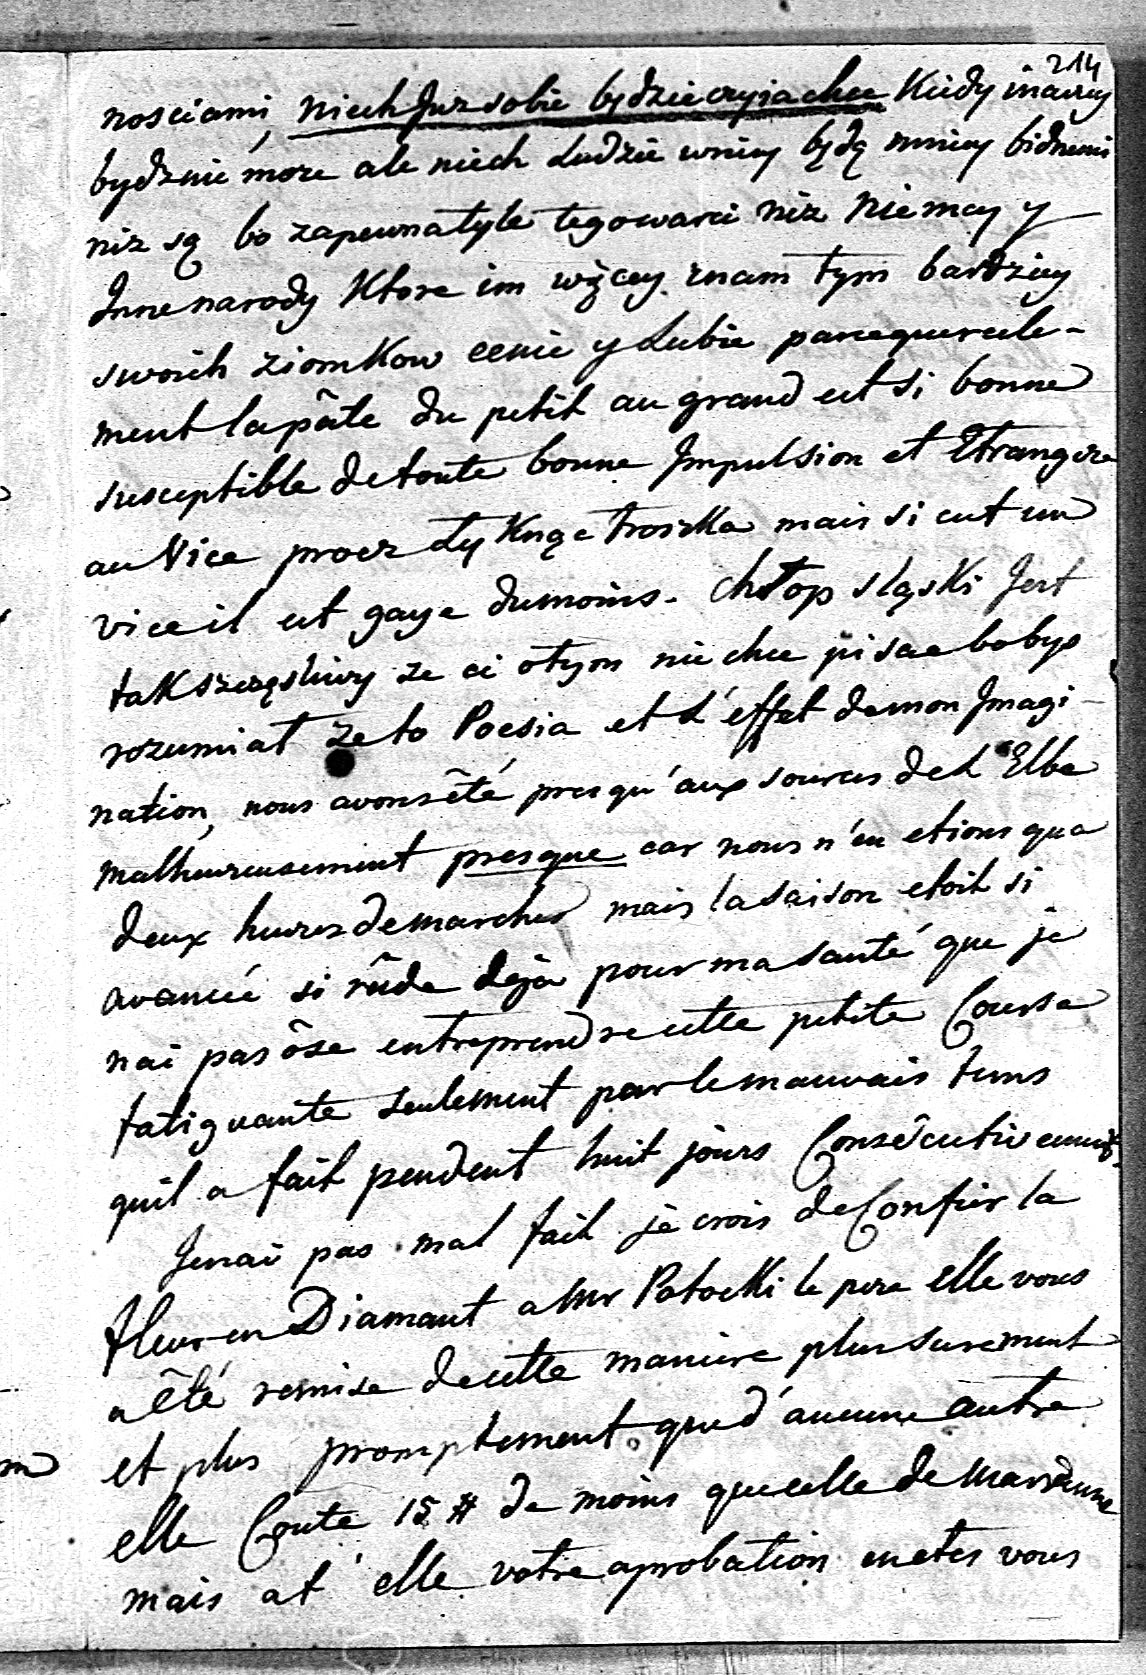 214
nosciami, niech Juz sobie bydzie czyia chce Kiedy inaczy
bydz nie może ale niech Ludzie w niey będą mniey bidnemi
niz są bo zapewna tyle tego warci niz Niemcy y
Inne narody Ktore im więcey znam tym bardziey
swoich ziomKow cenie y Lubie parceque reele-
ment la pâte du petit au grand est si bonne
susceptible de toute bonne Impulsion et Etrangere
au Vice procz Ty troszKa mais si cut un
vice il est gaye du moins. Chłop sląsKi Jest
taK szczęsliwy ze ci o tym nie chce pisac bo bys
rozumiał ze to Poesia et L'effet de mon Imagi-
nation, nous avons êté presqu'aux sources de L'Elbe
malheureusement presque car nous n'en etions qua
deux heures de marches mais la saison etoit si
avancée si rûde déja pour ma santé que je
nai pas ôse entreprendre cette petite Course
fatiguante seulement par le mauvais tems
quil a fait pendent huit jours Consécutivement.
Je nai pas mal fait je crois de Confier la
fleur en Diamant a Mr Potocki le pere elle vous
a êté remise de cette maniere plus surement
et plus promptement que d'aucune autre
elle Coute 15 # de moins que celle de Marianne
mais at'elle votre aprobation en etes vous